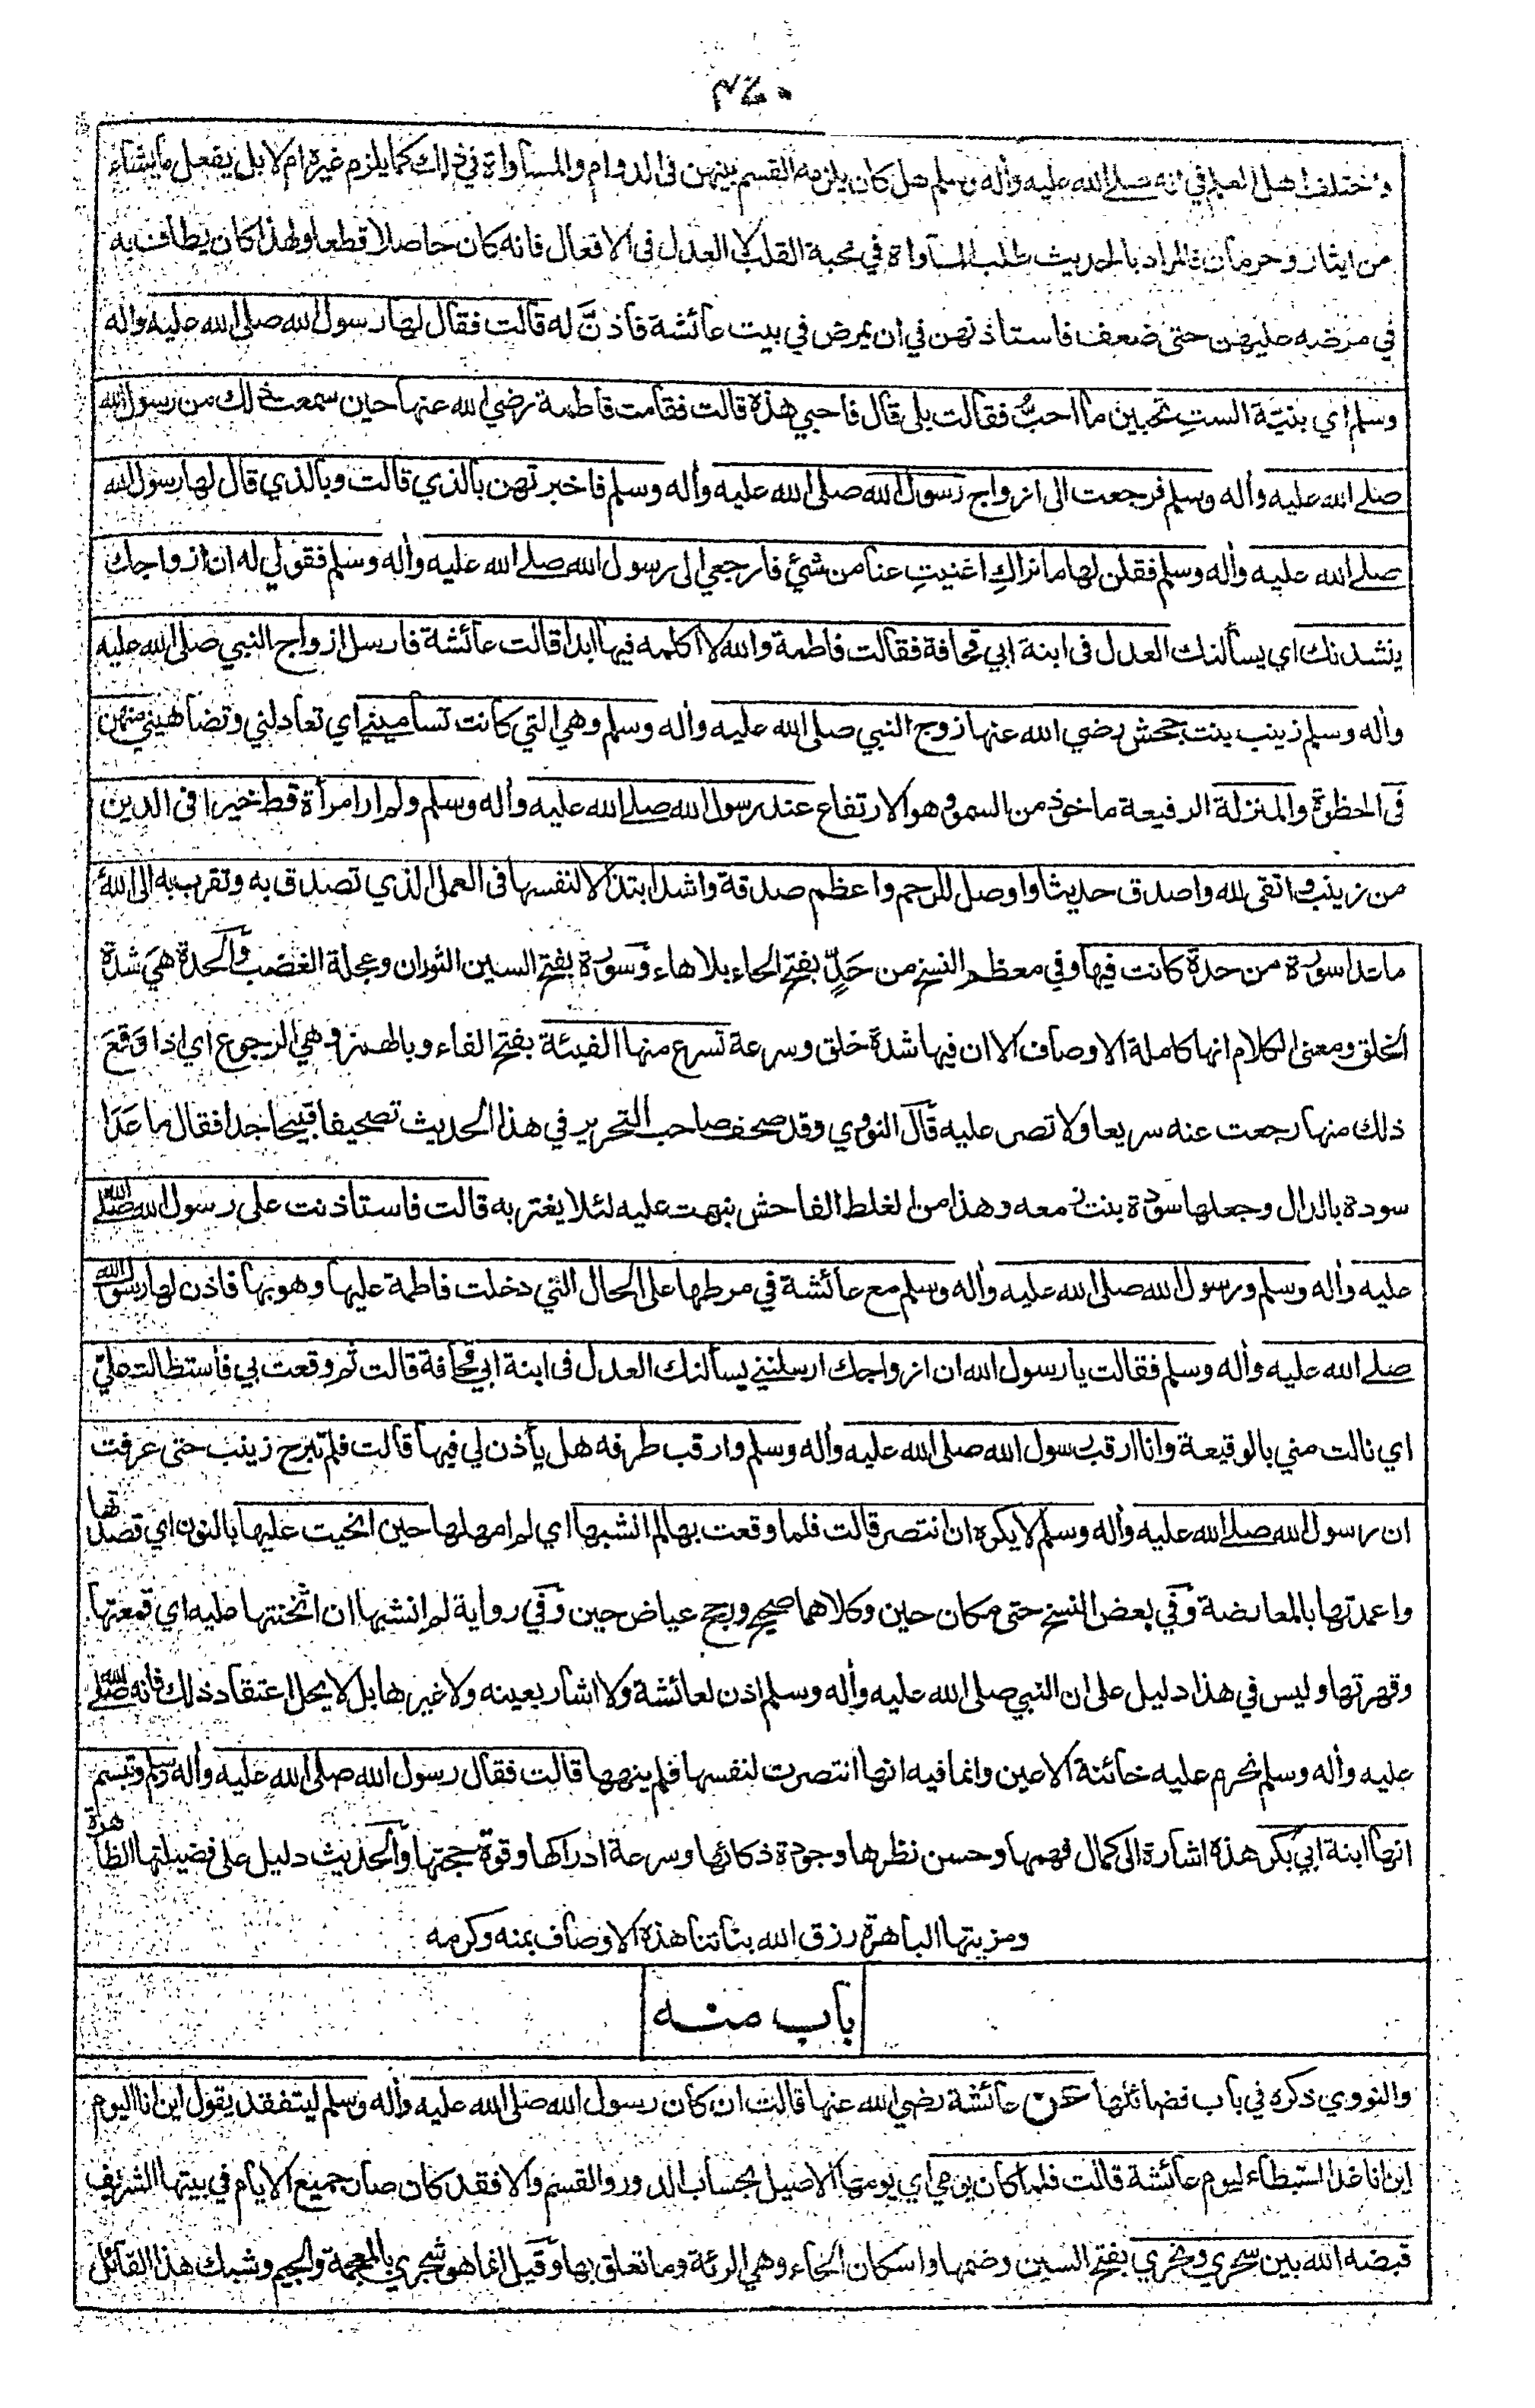 ۴۷۰
واختلف اهل العلم في انه صلى الله عليه وأله وسلم هل كان يلزمه القسم بينهن فى الدوام والمساواة في ذلك كما يلزم غيره ام لا بل يفعل ما يشاء
من ايثار وحرمان فالمراد بالحديث طلب المساواة في محبة القلب لا العدل فى الافعال فانه كان حاصلا قطعا ولهذا كان يطاف به
في مرضه عليهن حتى ضعف فاستاذنهن في ان يمرض في بيت عائشة فأذنَّ له قالت فقال لها رسول الله صلى الله عليه واله
وسلم اي بنيّة الستِ تحبين ما احبُّ فقالت بلى قال فاحبي هذه قالت فقامت فاطمة رضي الله عنها حين سمعت ذلك من رسول الله
صلے الله عليه وأله وسلم فرجعت الى ازواج رسول الله صلى الله عليه وأله وسلم فاخبرتهن بالذي قالت وبالذي قال لها رسول الله
صلے الله عليه وأله وسلم فقلن لها ما نراكِ اغنيتِ عنا من شئ فارجعي الى رسول الله صلے الله عليه وأله وسلم فقولي له ان ازواجك
ينشدنك اي يسألنك العدل فى ابنة ابي قحافة فقالت فاطمة والله لا اكلمه فيها ابدا قالت عائشة فارسل ازواج النبي صلى الله عليه
وأله وسلم زينب بنت جحش رضي الله عنها زوج النبي صلى الله عليه وأله وسلم وهي التي كانت تساميني اي تعادلني وتضاهيني منهن
فى الحظوة والمنزلة الرفيعة ماخوذ من السمو وهو الارتفاع عند رسول الله صلے الله عليه وأله وسلم ولم ار امرأة قط خيرا فى الدين
من زينب واتقى لله واصدق حديثا واوصل للرحم واعظم صدقة واشد ابتذالا لنفسها فى العمل الذي تصدق به وتقرب به الى الله
ما عدا سورة من حدة كانت فيها وفي معظم النسخ من حَدٍّ بفتح الحاء بلا هاء وسورة بفتح السين الثوران وعجلة الغضب والحدة هي شدة
الخلق ومعنى الكلام انها كاملة الاوصاف الا ان فيها شدة خلق وسرعة تسرع منها الفيئة بفتح الفاء وبالهمز وهي الرجوع اي اذا وقع
ذلك منها رجعت عنه سريعا ولا تصر عليه قال النووي وقد صحف صاحب التحرير في هذا الحديث تصحيفا قبيحا جدا فقال ما عَدَا
سودة بالدال وجعلها سودة بنت زمعه وهذا من الغلط الفاحش نبهت عليه لئلا يغتر به قالت فاستاذنت على رسول الله صلے الله
عليه وأله وسلم ورسول الله صلى الله عليه وأله وسلم مع عائشة في مرطها على الحال التي دخلت فاطمة عليها وهو بها فاذن لها رسول الله
صلے الله عليه وأله وسلم فقالت يا رسول الله ان ازواجك ارسلنني يسألنك العدل فى ابنة ابي قحافة قالت ثم وقعت بي فاستطالت عليّ
اي نالت مني بالوقيعة وانا ارقب رسول الله صلى الله عليه وأله وسلم وارقب طرفه هل يأذن لي فيها قالت فلم تبرح زينب حتى عرفت
ان رسول الله صلے الله عليه وأله وسلم لا يكره ان انتصر قالت فلما وقعت بها لم انشبها اي لم امهلها حين انحيت عليها بالنون اي قصدتها
واعمدتها بالمعارضة وفي بعض النسخ حتى مكان حين وكلاهما صحيح ورجح عياض حين وفي رواية لم انشبها ان اثخنتها عليه اي قمعتها
وقهرتها وليس في هذا دليل على ان النبي صلى الله عليه وأله وسلم اذن لعائشة ولا اشار بعينه ولا غيرها بل لا يحل اعتقاد ذلك فانه صلے الله
عليه وأله وسلم تحرم عليه خائنة الاعين وانما فيه انها انتصرت لنفسها فلم ينهها قالت فقال رسول الله صلى الله عليه وأله وسلم وتبسم
انها ابنة ابي بكر هذه اشارة الى كمال فهمها وحسن نظرها وجودة ذكائها وسرعة ادراكها وقوة حجتها والحديث دليل على فضيلتها الظاهرة
ومزيتها الباهرة رزق الله بناتنا هذه الاوصاف بمنه وكرمه
باب منه
والنووي ذكره في باب فضائلها عن عائشة رضي الله عنها قالت ان كان رسول الله صلى الله عليه وأله وسلم ليتفقد يقول اين انا اليوم
اين انا غدا استبطاء ليوم عائشة قالت فلما كان يومي اي يومها الاصيل بحساب الدور والقسم والا فقد كان صار جميع الايام في بيتها الشريف
قبضه الله بين سحري ونحري بفتح السين وضمها واسكان الحاء وهي الرئة وما تعلق بها وقيل انما هو شجري بالمعجمة والجيم وشبك هذا القائل